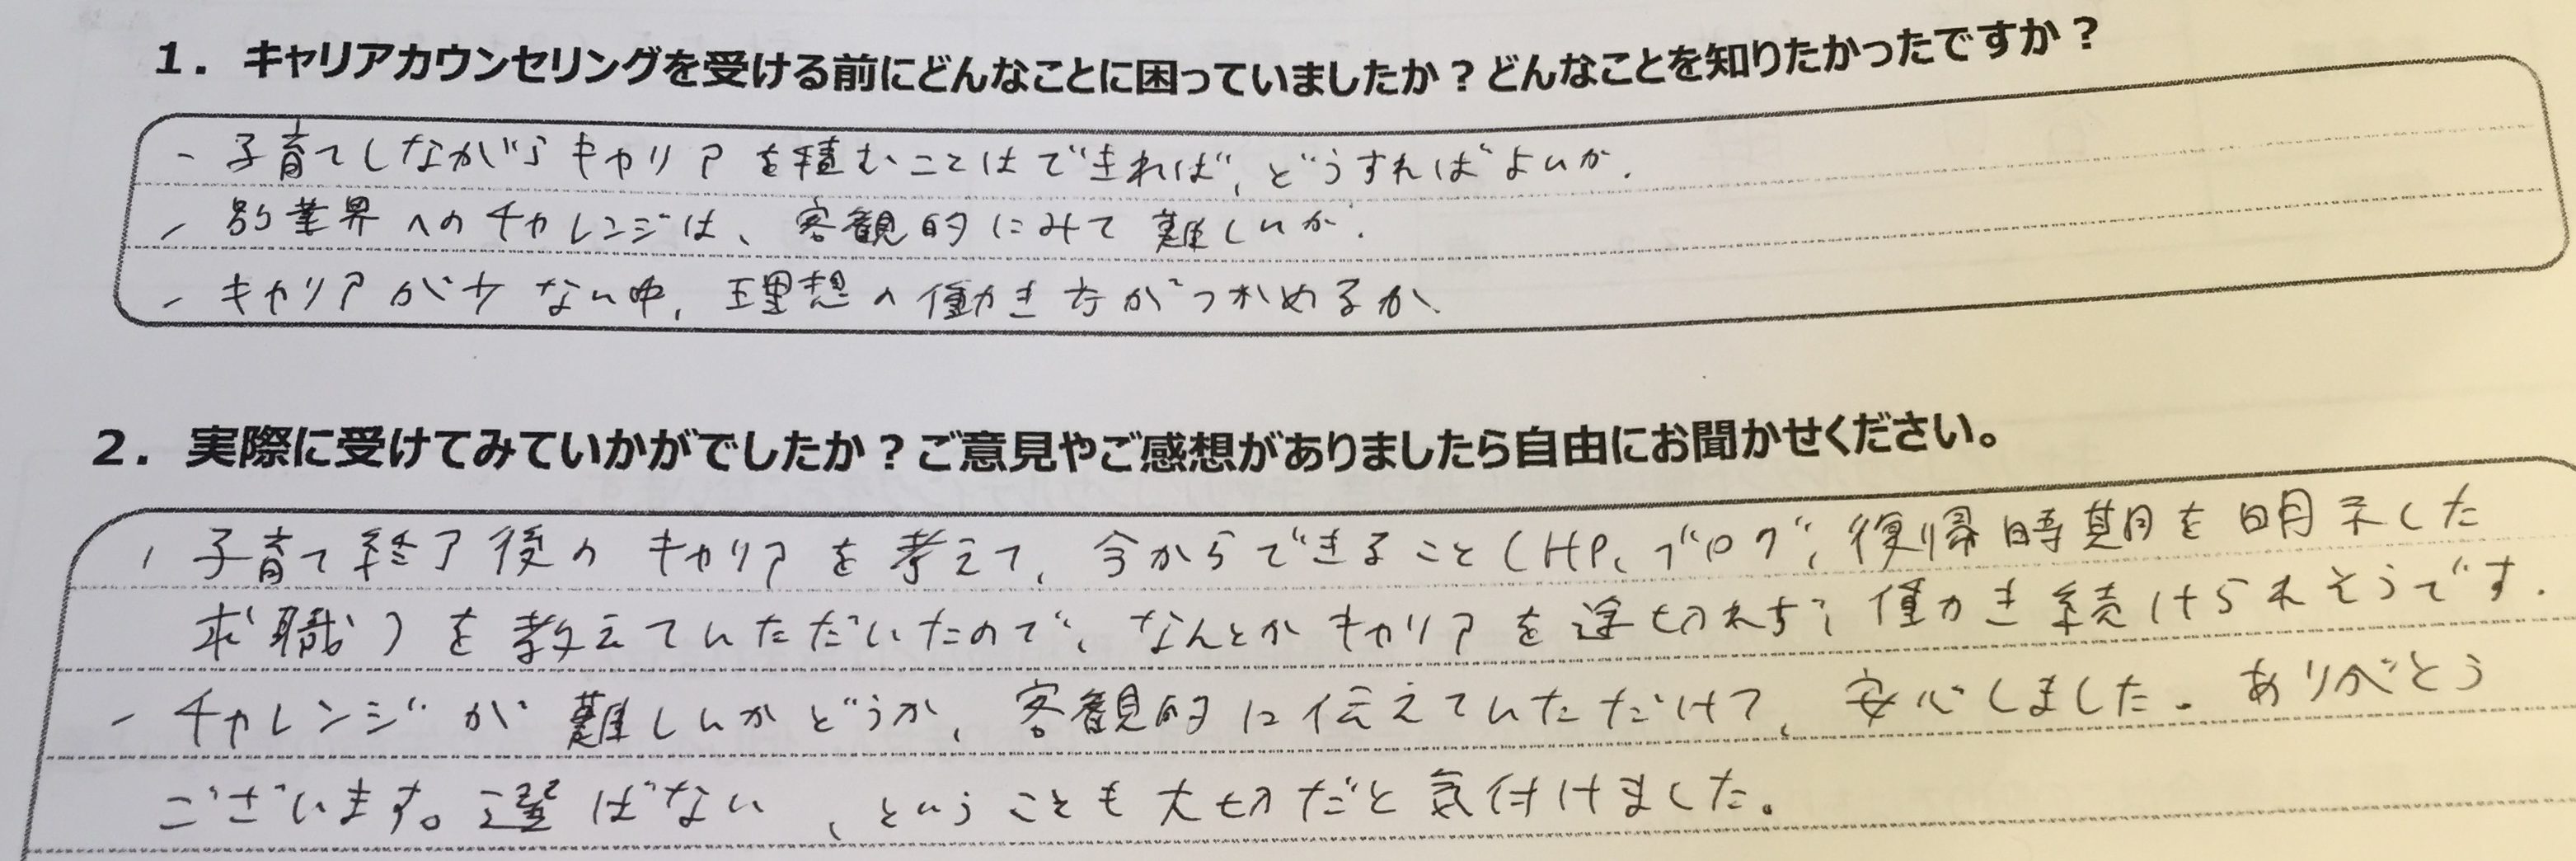 1．キャリアカウンセリングを受ける前にどんなことに困っていましたか？どんなことを知りたかったですか？
- 子育てしながらキャリアを積むことはできれば、どうすればよいか.
- 別業界へのチャレンジは、客観的にみて難しいか.
- キャリアが少ない中、理想の働き方がつかめるか.
2．実際に受けてみていかがでしたか？ご意見やご感想がありましたら自由にお聞かせください。
- 子育て終了後のキャリアを考えて、今からできること(HP、ブログ、復帰時期を明示した
求職)を教えていただいたので、なんとかキャリアを途切れずに働き続けられそうです.
- チャレンジが難しいかどうか、客観的に伝えていただけて、安心しました。ありがとう
ございます。選ばない、ということも大切だと気付けました。